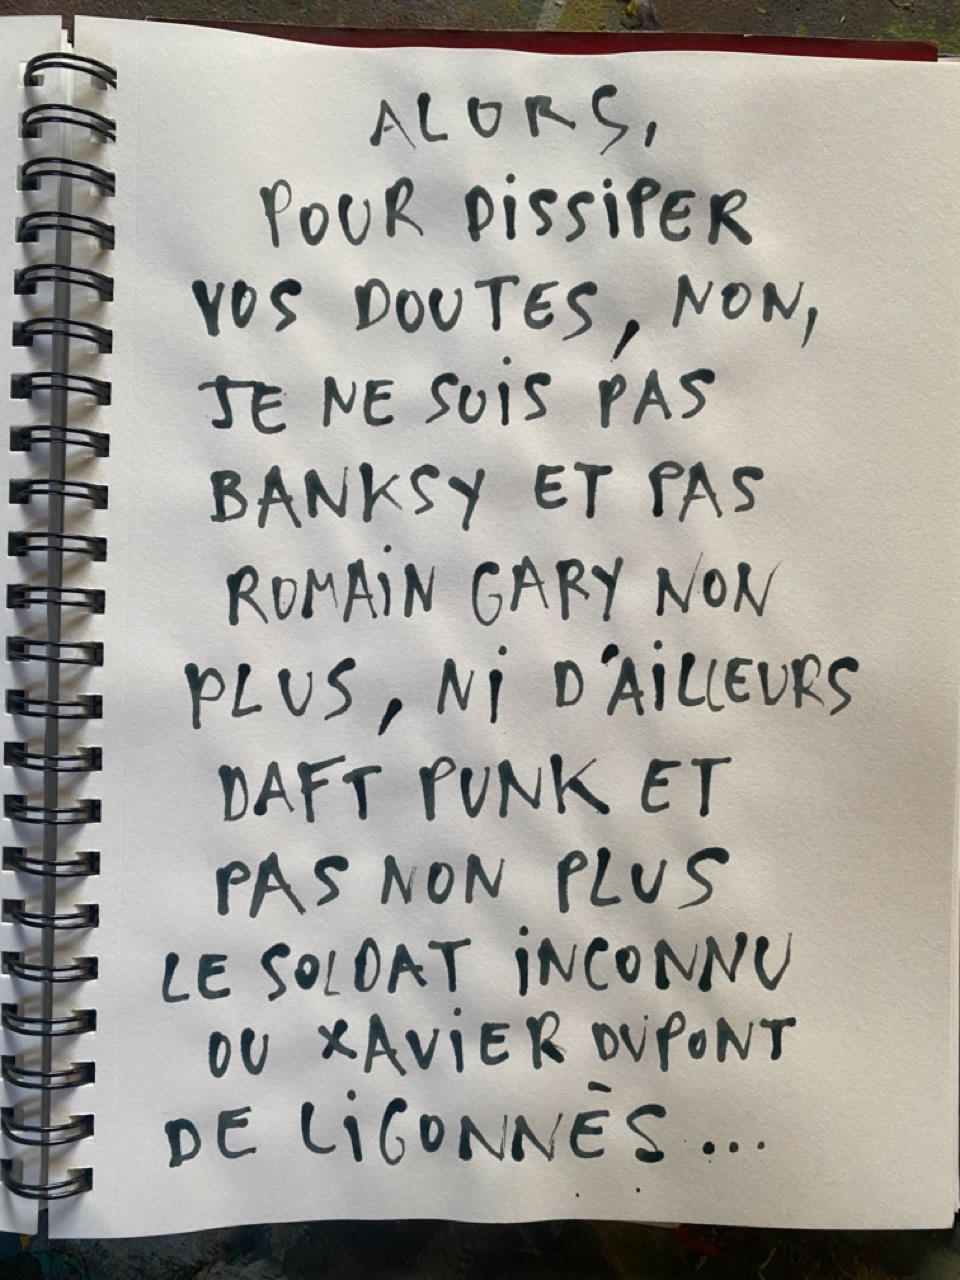 ALORS,
POUR DiSSiPER
VOS DOUTES, NON,
JE NE SUiS PAS
BANKSY ET PAS
ROMAiN GARY NON
PLUS, Ni D'AiLLEURS
DAFT PUNK ET
PAS NON PLUS
LE SOLDAT iNCONNU
OU XAViER DUPONT
DE LiGONNÈS...